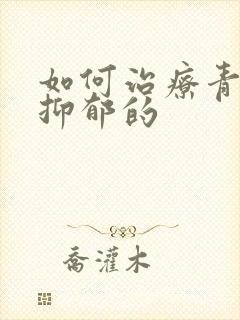 如何治療青
抑郁的
喬灌木